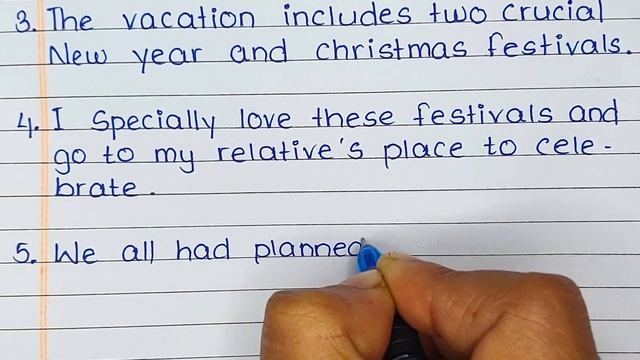 3. The vacation includes two crucial
New year and christmas festivals.
4. I Specially love these festivals and
go to my relative's place to cele-
brate.
5. We all had planned